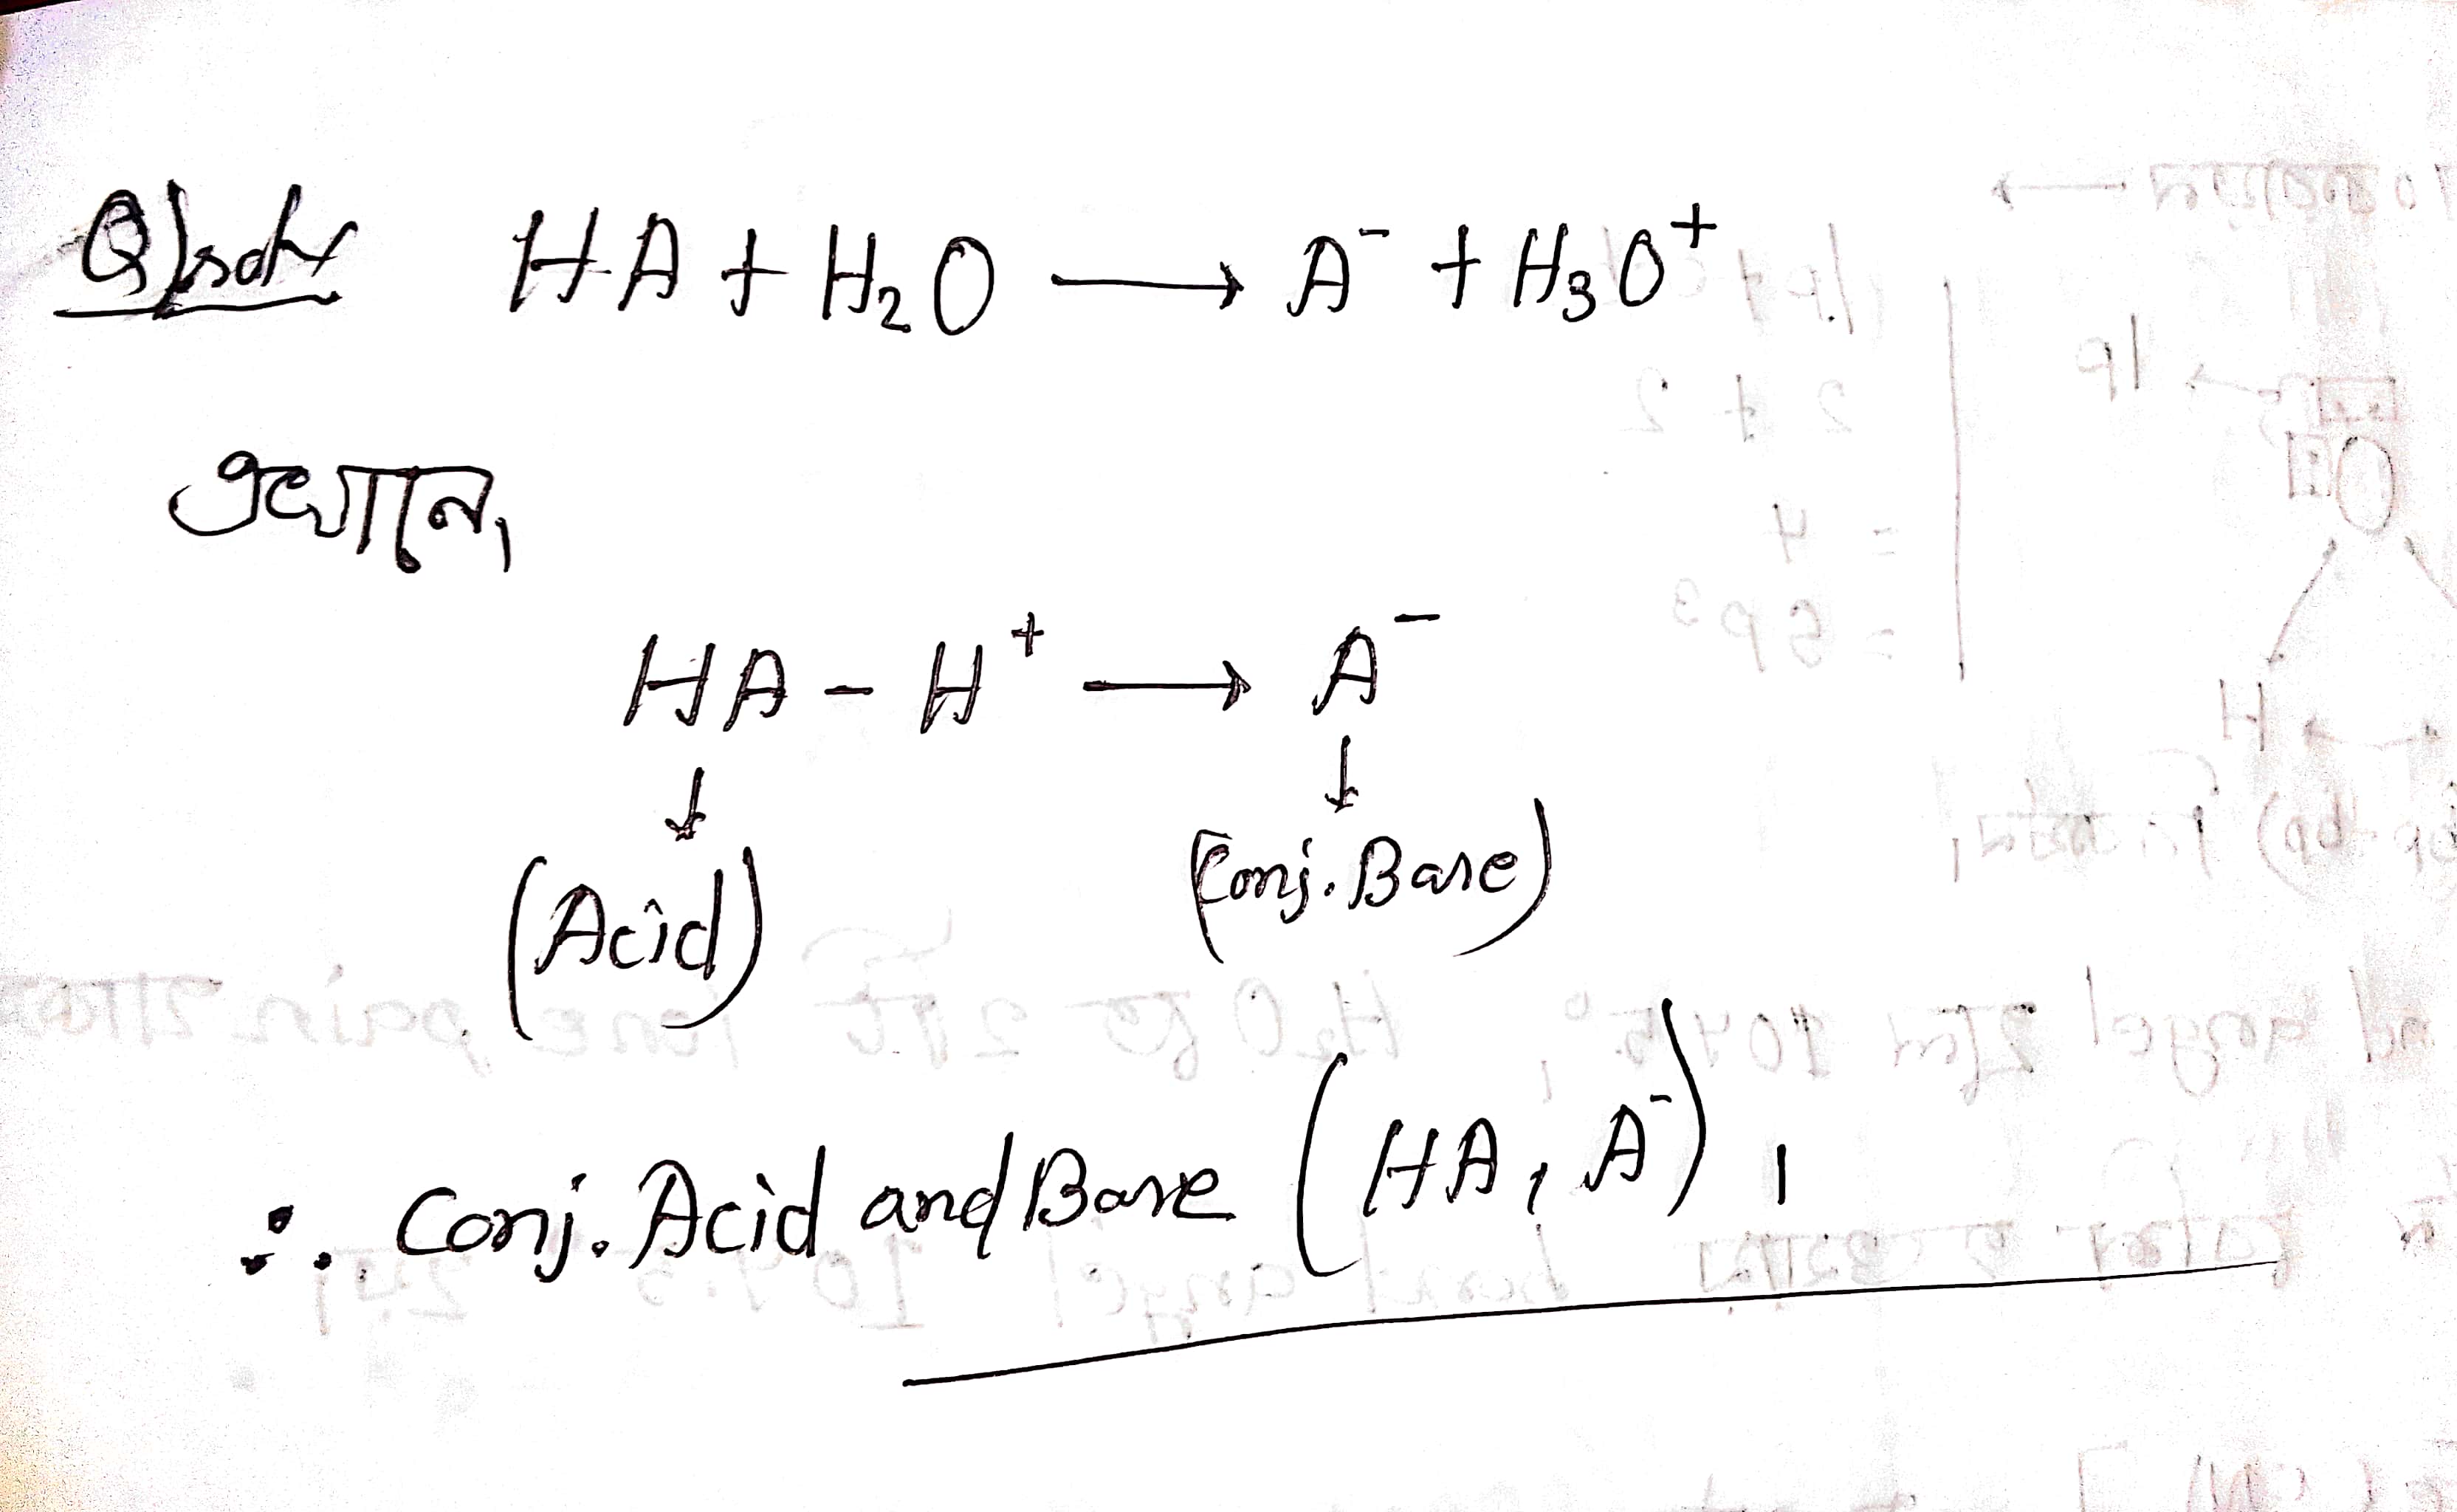 Q) solⁿ HA + H₂O ⟶ A⁻ + H₃O⁺
এখানে,
HA - H⁺ ⟶ A⁻
↓ ↓
(Acid) (Conj. Base)
∴ Conj. Acid and Base (HA, A⁻)।